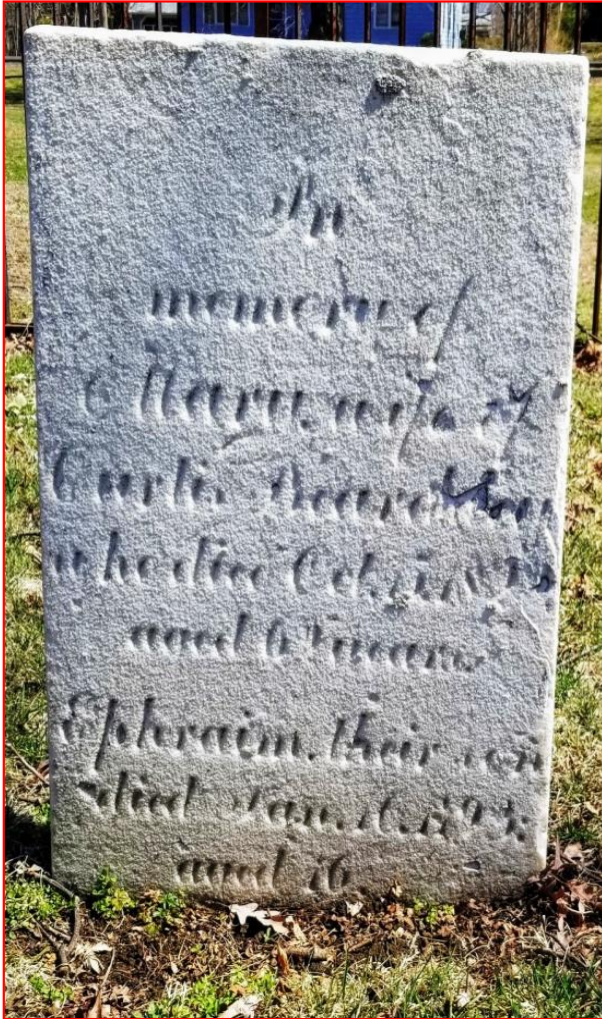 In
memory of
Mary, wife of
Curtis Beardslee
who died Oct.
aged 6 years
Ephraim, their son
died Jan. 16.
aged 16